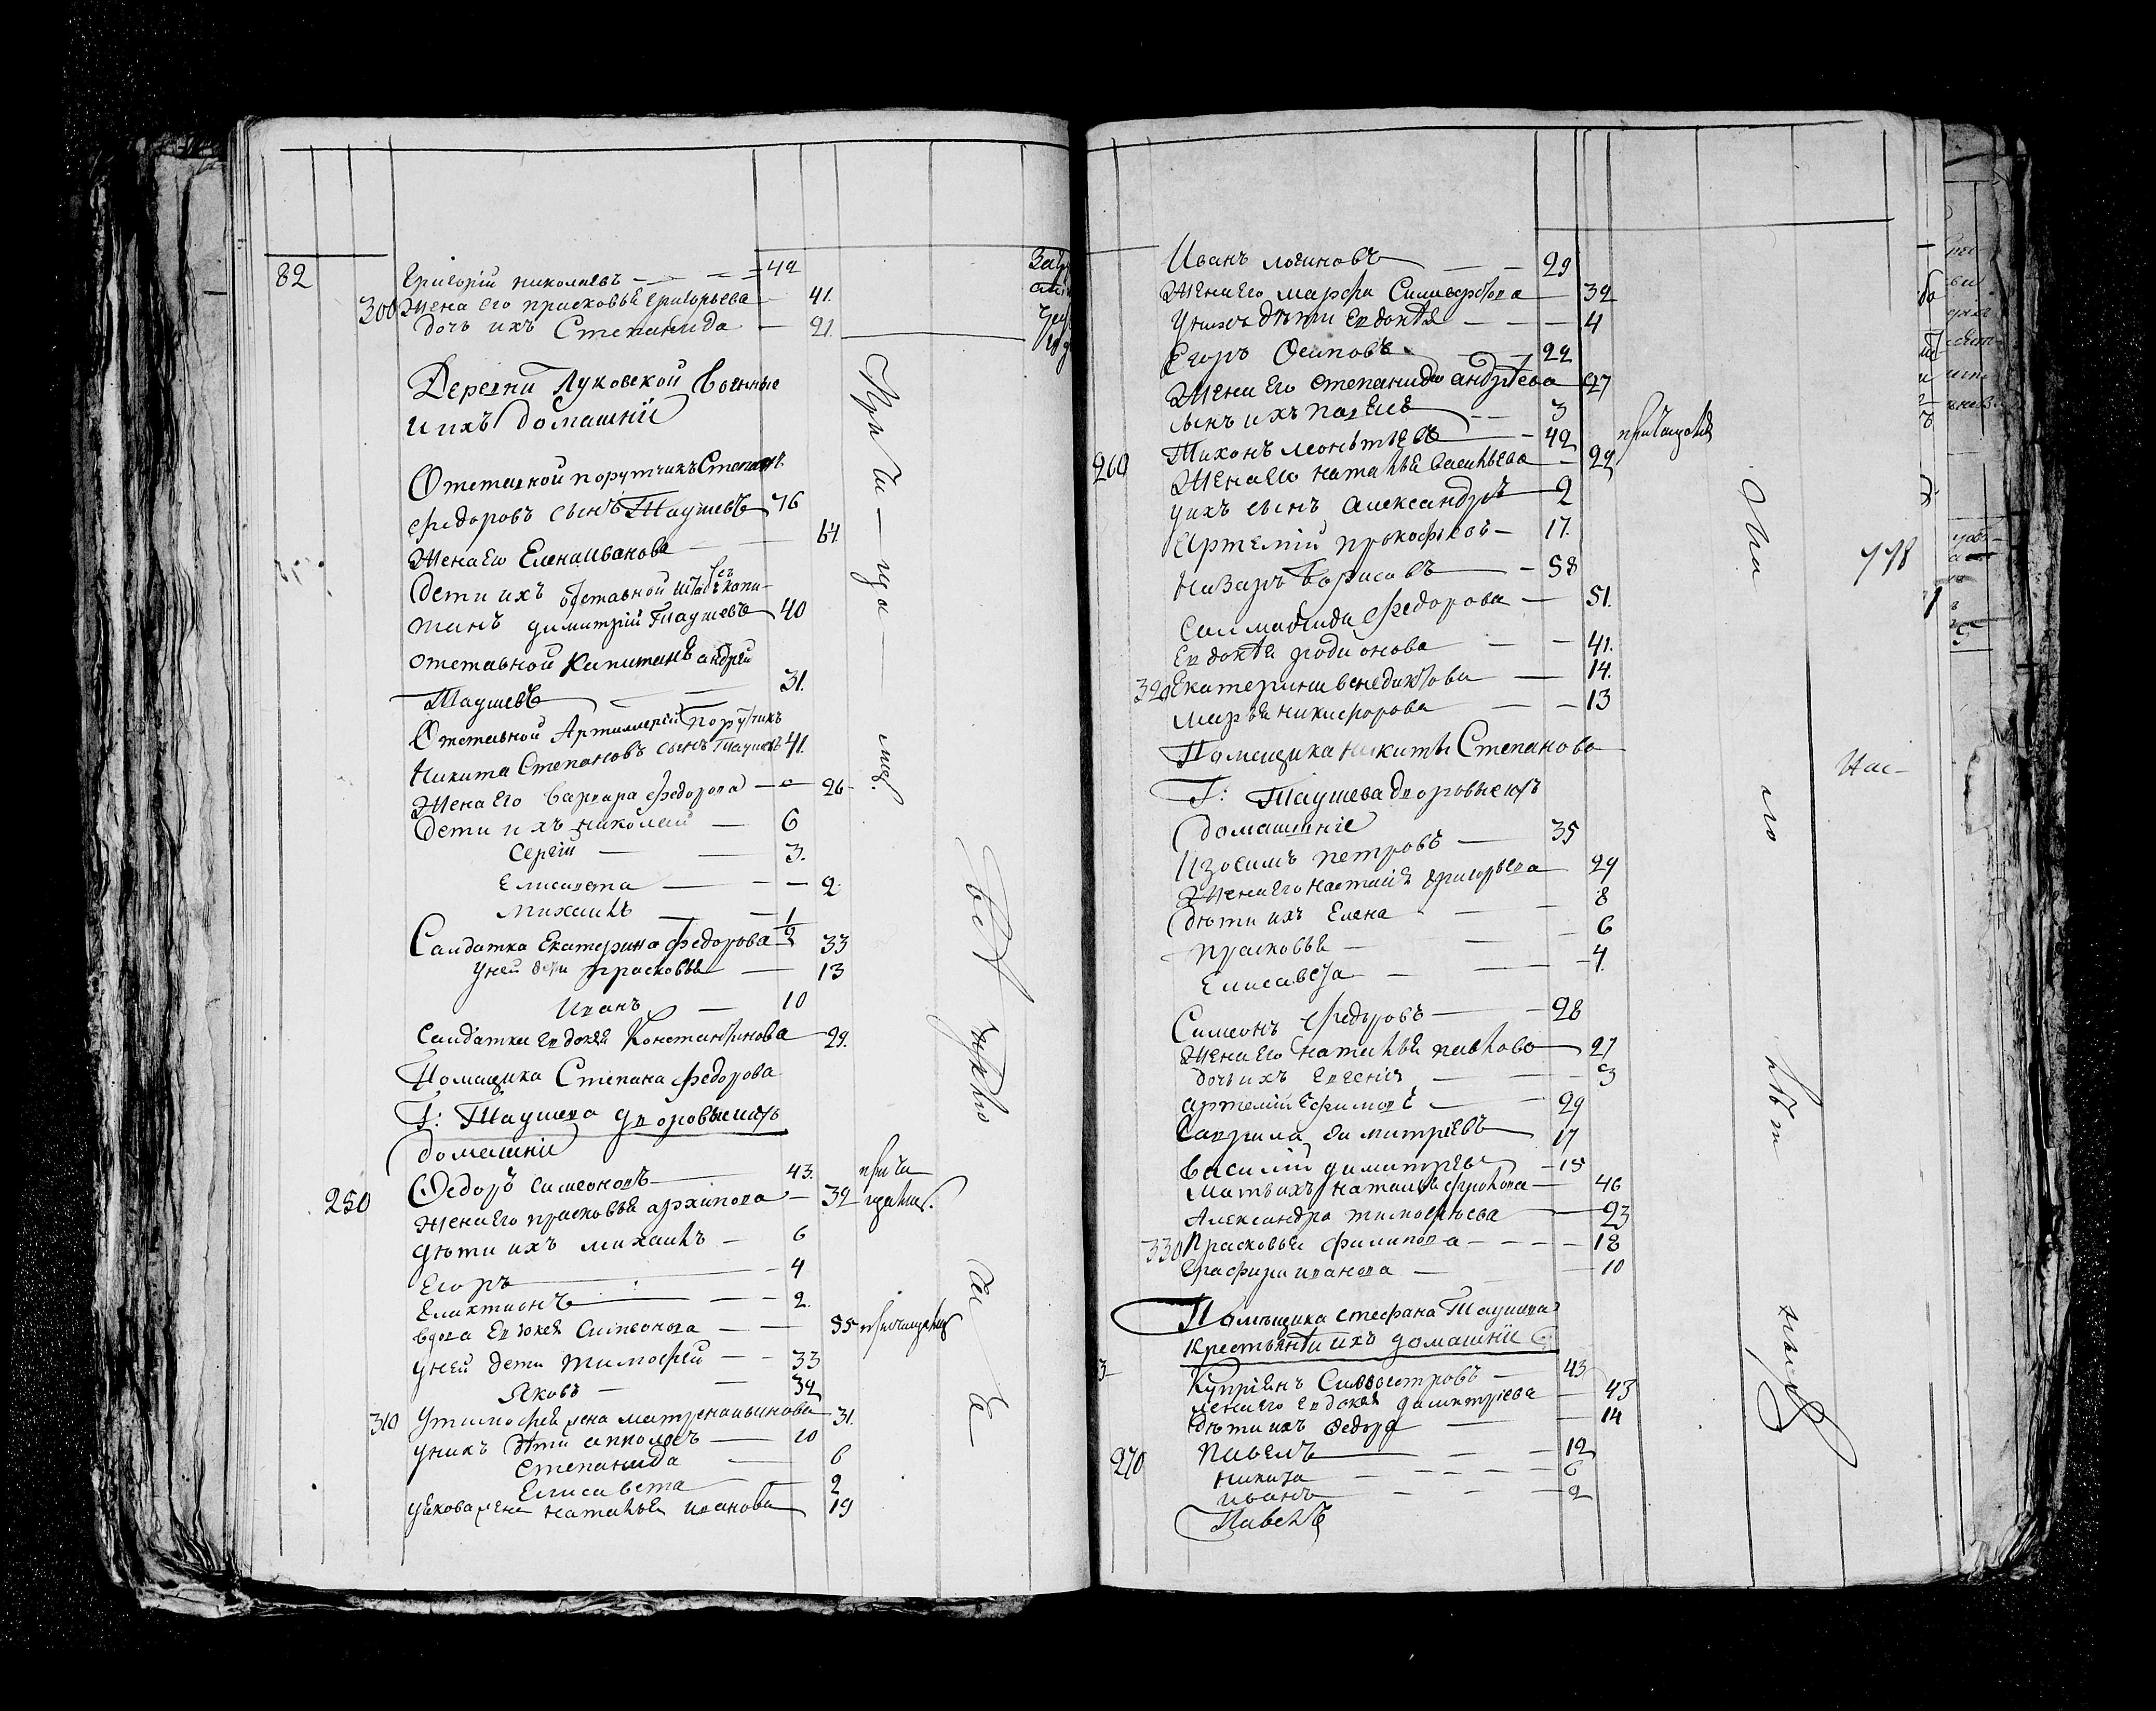 82 Григорій николаевъ 42
300 Жена его прасковья григорьева 41.
дочь ихъ Степанида 21.
Деревни Луковской военные
и ихъ домашніи
Отставной порутчикъ Степанъ
федоровъ сынъ Таушевъ 76
Жена его Елена иванова 64
Дети ихъ отставной штабсъ капи-
танъ димитрій Таушевъ 40
отставной капитанъ андрей
Таушевъ 31.
Отставной Артиллеріи порутчикъ
Никита Степановъ сынъ Таушевъ 41.
Жена его варвара федорова 26
Дети ихъ николай 6
Сергій 3.
Елисавета 2
Михаилъ 1/2
Салдатка Екатерина федорова 33
у ней дети прасковья 13
Иванъ 10
Салдатка евдокея Константинова 29.
Помещика Степана федорова
Г: Таушева дворовые ихъ
домашніи
250 Федоръ симеоновъ 43.
Жена его прасковья архипова 32
дети ихъ михаилъ 6
Егоръ 4
2.
вдова Евдокея 55
у ней дети тимофей 33
Яковъ 32
310 у тимофея жена матрена 31.
у нихъ дети 10
Степанида 6
Елисавета 2
у якова жена наталья иванова 19
При ча ща лись
Иванъ логиновъ 29
Жена его марфа Силиверстова 32
у нихъ дети Евдокея 4
Егоръ Осиповъ 22
Жена его степанида андреева 27
сынъ ихъ павелъ 3
260 Тихонъ леонтьевъ 42
Жена его наталья васильева 22
у ихъ сынъ Александръ 2
Артемій прокофьевъ 17.
Назаръ борисовъ 58
федорова 51.
Евдокея родионова 41.
320 Екатерина венедиктова 14.
марья никифорова 13
Помещика никиты Степанова
Г: Таушева дворовые ихъ
домашніе
Изосимъ петровъ 35
Жена его настасія григорьева 29
Дети ихъ Елена 8
прасковья 6
Елисавета 4.
Симеонъ федоровъ 28
Жена его наталья павлова 27
дочь ихъ евгенія 3
артемій Ефимовъ 29
Гаврила димитріевъ 17
василій димитріевъ 15
Мать ихъ наталья фролова 46
Александра тимофеева 23
330 Прасковья филипова 18
иванова 10
Помещика стефана Таушева
крестьяни ихъ домашніи
Купріянъ Силвестровъ 43
Жена его евдокея димитріева 43
Дети ихъ федоръ 14
270 павелъ 12
никита 6
иванъ 2
Павелъ